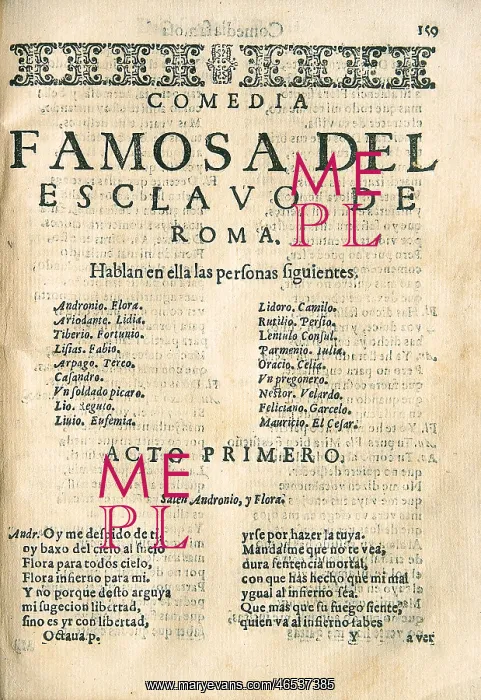 159
COMEDIA
FAMOSA DEL
ESCLAVO DE
ROMA.
Hablan en ella las personas siguientes.
Andronio. Flora.
Ariodante. Lidia.
Tiberio. Fortunio.
Lisias. Fabio.
Arpago. Tereo.
Casandro.
Vn soldado picaro.
Lio. Reguio.
Liuio. Eufemia.
Lidoro. Camilo.
Rutilio. Persio.
Lentulo Consul.
Parmenio. Iulia.
Oracio. Celia.
Vn pregonero.
Nestor. Velardo.
Feliciano. Garcelo.
Mauricio. El Cesar.
ACTO PRIMERO.
Salen Andronio, y Flora.
Andr. Oy me despido de ti,
oy baxo del cielo al suelo
Flora para todos cielo,
Flora infierno para mi.
Y no porque desto arguya
mi sugecion libertad,
sino es yr con libertad,
Octaua p.
yrse por hazer la tuya.
Mandasme que no te vea,
dura sentencia mortal,
con que has hecho que mi mal
ygual al infierno sea.
Que mas que su fuego siente,
quien va al infierno sabes
Y
a ver
ME
PL
ME
PL
www.maryevans.com/46537385